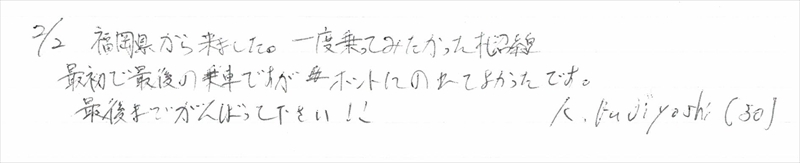 2/2 福岡県から来ました。一度乗ってみたかった札沼線
最初で最後の乗車ですがホントにのれてよかったです。
最後までがんばって下さい!! K. Fujiyoshi (50)